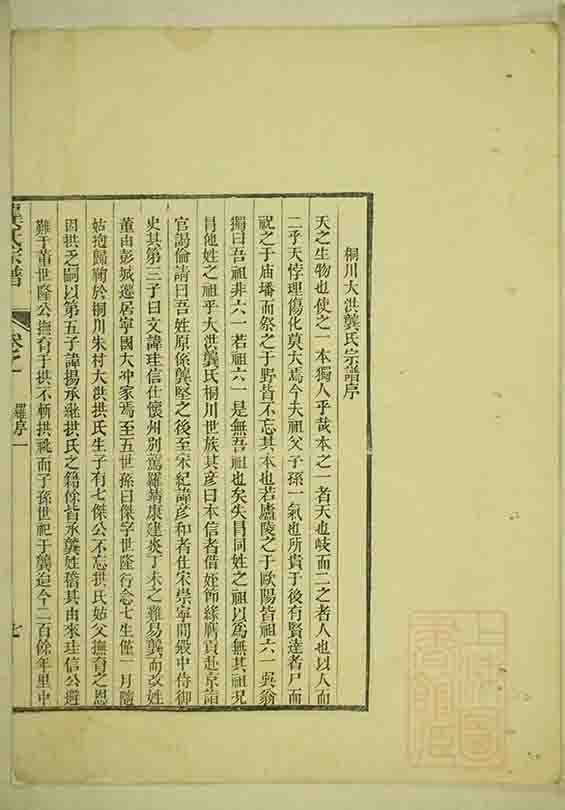 桐川大洪龔氏宗譜序
天之生物也使之一本獨人乎哉本之一者天也歧而二之者人也以人而
二乎天悖理傷化莫大焉今夫祖父子孫一氣也所貴于後有賢達者尸而
祝之于庙墦而祭之于野皆不忘其本也若廬陵之于歐陽皆祖六一吳翁
獨曰吾祖非六一若祖六一是無吾祖也矣夫冒同姓之祖以為無其祖况
冒他姓之祖乎大洪龔氏桐川世族其彦曰本信者借姪飾緣膺貢赴京詣
官謁倫請曰吾姓原係龔堅之後至宋紀諱彦和者仕宋崇寧間殿中侍御
史其第三子曰文諱珪信仕懷州别駕羅靖康建炎丁未之難易龔而改姓
董由彭城遷居寧國大冲家焉至五世孫曰傑字世隆行念七生僅一月隨
姑抱歸鞠於桐川朱村大洪拱氏生子有七傑公不忘拱氏姑父撫育之恩
因拱乏嗣以第五子諱揚承継拱氏之籍餘皆承龔姓稽其由來珪信公避
難于董世隆公撫育于拱不斬拱祧而子孫世祀于龔迨今二百餘年里中
氏宗譜
卷之一
羅序一
七
上海圖書館藏